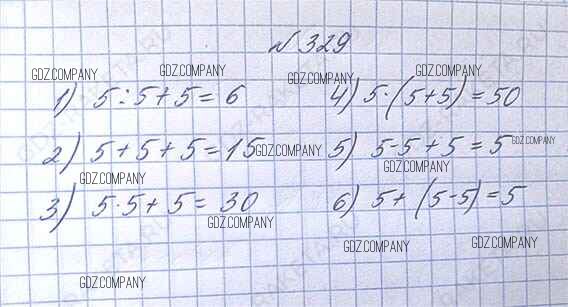 № 329
GDZ.COMPANY GDZ.COMPANY GDZ.COMPANY GDZ.COMPANY
1) 5:5+5=6 4) 5·(5+5)=50
2) 5+5+5=15 GDZ.COMPANY 5) 5-5+5=5 GDZ.COMPANY
GDZ.COMPANY GDZ.COMPANY
3) 5·5+5=30 6) 5+(5-5)=5
GDZ.COMPANY
GDZ.COMPANY GDZ.COMPANY
GDZ.COMPANY